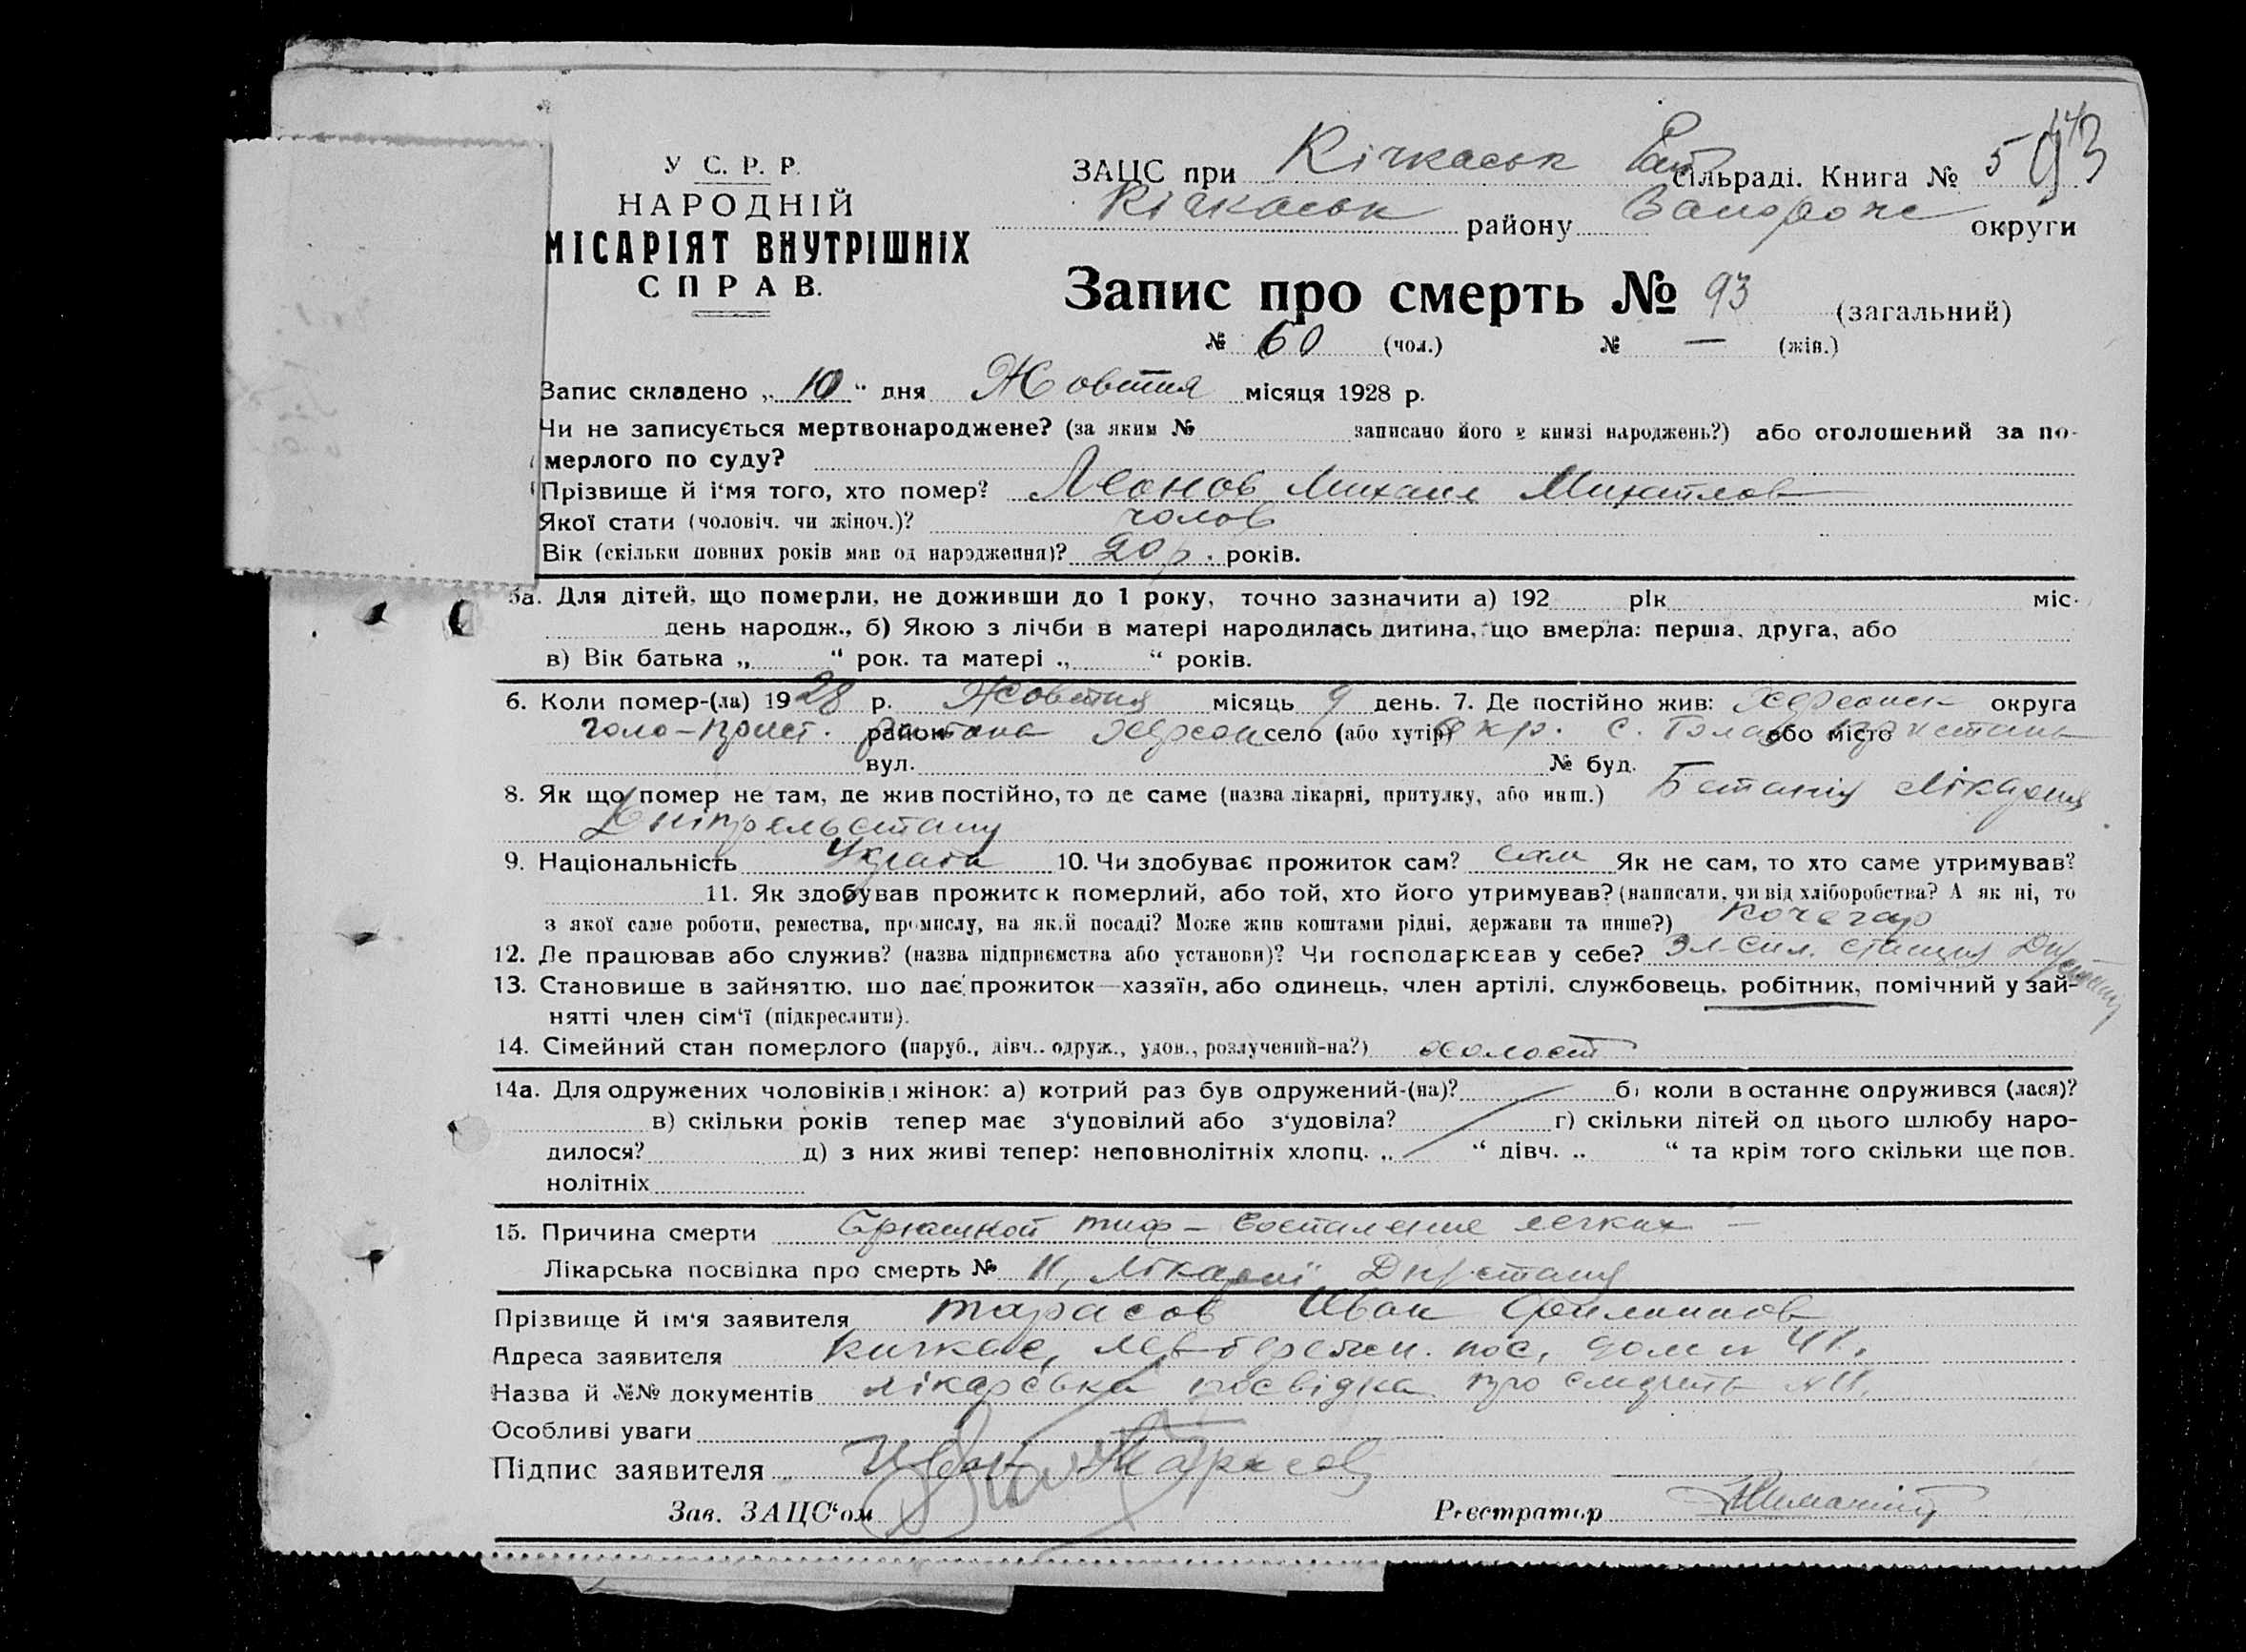 У С. Р. Р.
НАРОДНІЙ
МІСАРІЯТ ВНУТРІШНІХ
СПРАВ.
ЗАЦС при Кічкаськ сільраді. Книга № 5
Кічкаськ району Запорож округи
Запис про смерть № 93 (загальний)
№ 60 (чол.) № — (жін.)
Запис складено „10“ дня Жовтня місяця 1928 р.
Чи не записується мертвонароджене? (за яким № записано його в книзі народжень?) або оголошений за по-
мерлого по суду?
Прізвище й і‘мя того, хто помер? Леонов Михаил Михайлов
Якої стати (чоловіч. чи жіноч.)? чолов
Вік (скільки повних років мав од народження)? 20 р. років.
5а. Для дітей, що померли, не доживши до 1 року, точно зазначити а) 192 рік міс.
день народж., б) Якою з лічби в матері народилась дитина, що вмерла: перша, друга, або
в) Вік батька „ “ рок. та матері „ “ років.
6. Коли помер-(ла) 1928 р. Жовтня місяць 9 день. 7. Де постійно жив: Херсонск округа
Голо-Прист. район Херсон село (або хутір) окр. с. Гола Пристань або місто
вул. № буд.
8. Як що помер не там, де жив постійно, то де саме (назва лікарні, притулку, або инш.) Лікарня
Дніпрельстану
9. Національність Украін 10. Чи здобуває прожиток сам? сам Як не сам, то хто саме утримував?
11. Як здобував прожиток померлий, або той, хто його утримував? (написати, чи від хліборобства? А як ні, то
з якої саме роботи, ремества, промислу, на якій посаді? Може жив коштами рідні, держави та инше?) Кочегар
12. Де працював або служив? (назва підприємства або установи)? Чи господарював у себе? Эл-сил. станция
13. Становище в зайняттю, що дає прожиток—хазяїн, або одинець, член артілі, службовець, робітник, помічний у зай-
нятті член сім‘ї (підкреслити).
14. Сімейний стан померлого (паруб., дівч., одруж., удов., розлучений-на?) холост
14а. Для одружених чоловіків і жінок: а) котрий раз був одружений-(на)? б) коли востаннє одружився (лася)?
в) скільки років тепер має з‘удовілий або з‘удовіла? г) скільки дітей од цього шлюбу наро-
дилося? д) з них живі тепер: неповнолітніх хлопц. „ “ дівч. „ “ та крім того скільки ще пов.
нолітніх
15. Причина смерти брюшной тиф — воспаление легких —
Лікарська посвідка про смерть № 11, Лікарні Дн/стану
Прізвище й ім‘я заявителя Тарасов Иван Филиппов
Адреса заявителя Кичкас, лев-бережн. пос, дом № 41.
Назва й №№ документів лікарська посвідка про смерть № 11.
Особливі уваги
Підпис заявителя Иван Тарасов
Зав. ЗАЦС‘ом Реєстратор